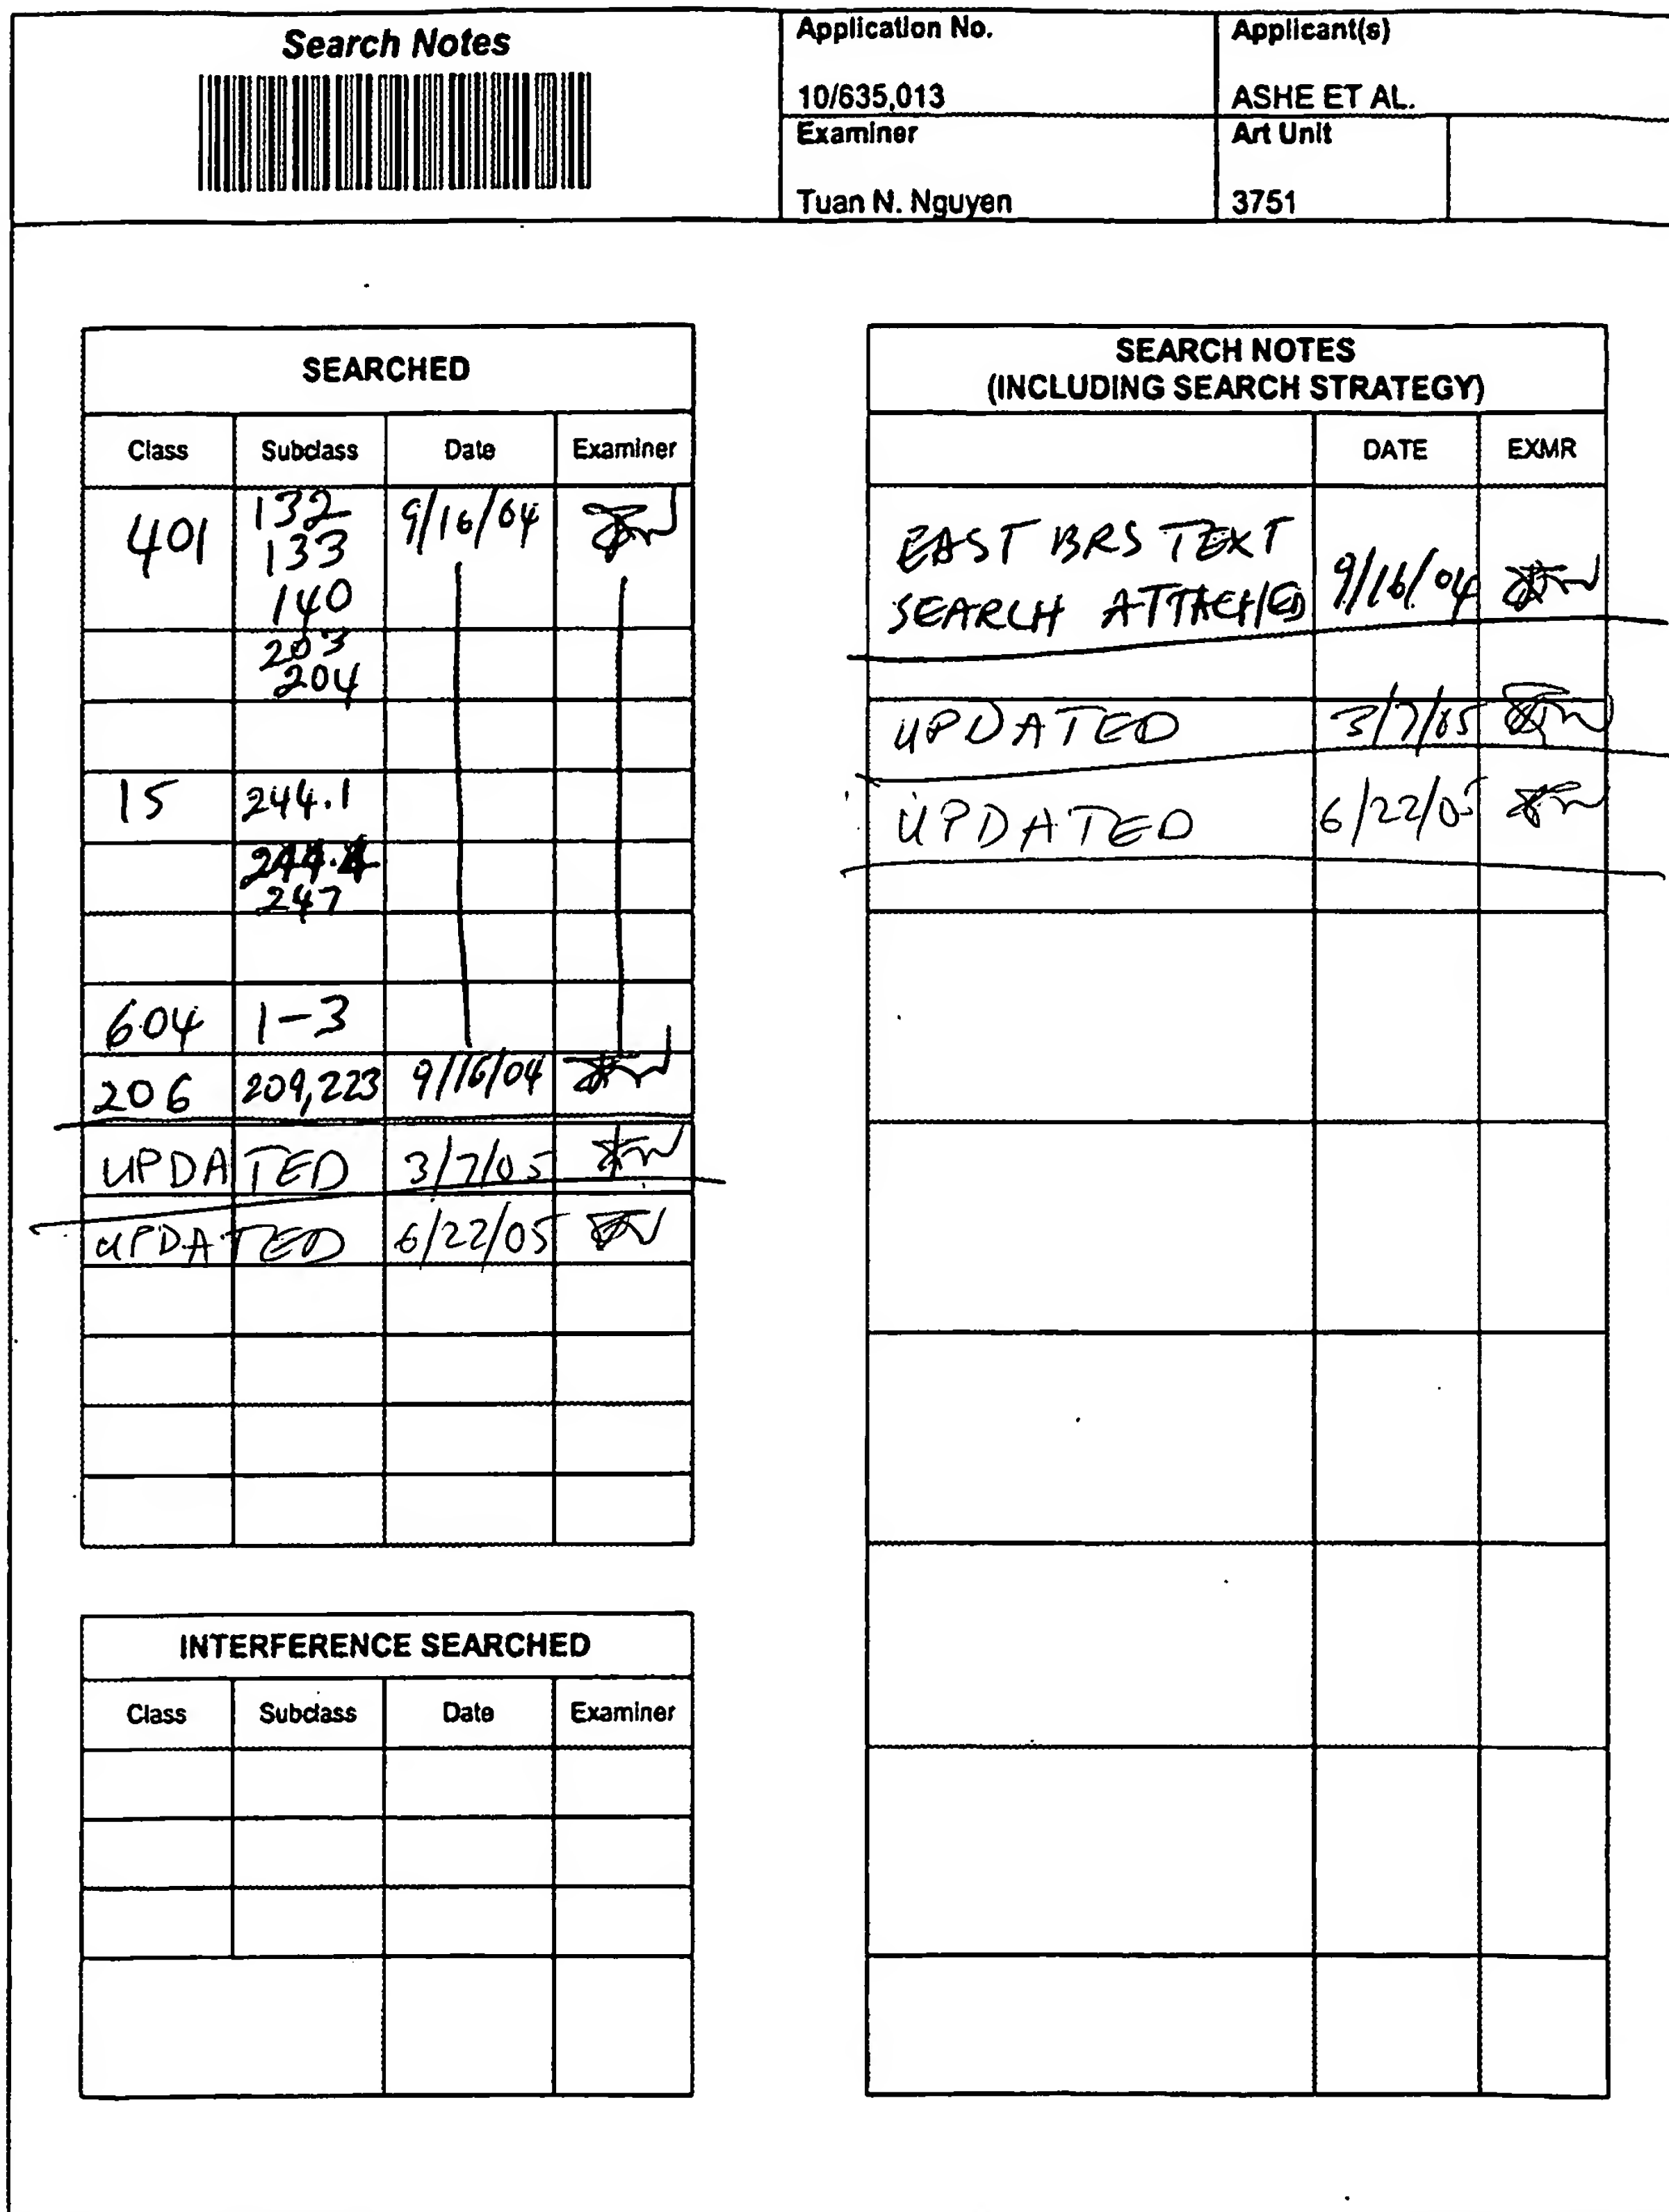 Search Notes
Application No.
Applicant(s)
10/635,013
ASHE ET AL.
Examiner
Art Unit
Tuan N. Nguyen
3751
SEARCHED
Class Subclass Date Examiner
401 132 9/16/04
133
140
203
204
15 244.1
244.4
247
604 1-3
206 209,223 9/16/04
UPDATED 3/7/05
UPDATED 6/22/05
INTERFERENCE SEARCHED
Class Subclass Date Examiner
SEARCH NOTES
(INCLUDING SEARCH STRATEGY)
DATE EXMR
EAST BRS TEXT
SEARCH ATTACHED 9/16/04
UPDATED 3/7/05
UPDATED 6/22/05